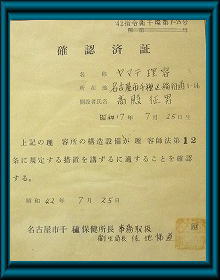 42指令衛千環第1-25号
確認済証
名称 ヤマテ理容
所在地 名古屋市千種区
開設者氏名 高殿征男
昭和17年7月25日生
上記の理容所の構造設備が理容師法第12
条に規定する措置を講ずるに適することを確認
する。
昭和42年7月25日
名古屋市千種保健所長 事務取扱
衛生局長 佐